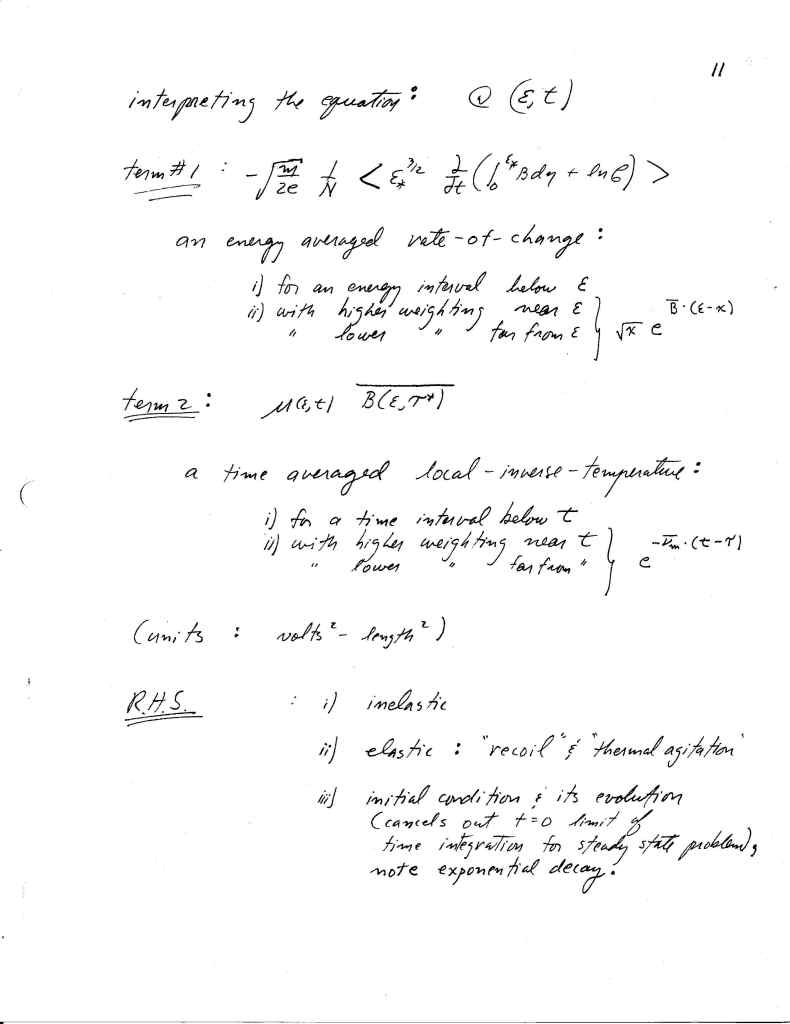 11
interpreting the equation: Q (ε, t)
term #1 : -√(m/2e) 1/N < ε*^3/2 ∂/∂t (∫₀^ε* B dη + ln 6) >
an energy averaged rate-of-change :
i) for an energy interval below ε
ii) with higher weighting near ε } √x e^B̅·(ε-x)
" lower " far from ε
term 2 : μ(ε,t) B(ε,τ*)
a time averaged local-inverse-temperature :
i) for a time interval below t
ii) with higher weighting near t } e^-ν̅m·(t-τ)
" lower " far from "
(units : volts² - length²)
R.H.S. : i) inelastic
ii) elastic : "recoil" & "thermal agitation"
iii) initial condition & its evolution
(cancels out t=0 limit of
time integration for steady state problem),
note exponential decay.